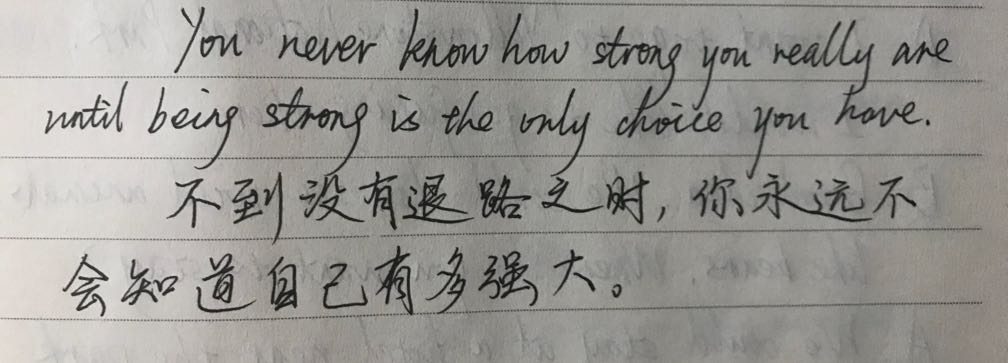 You never know how strong you really are
until being strong is the only choice you have.
不到没有退路之时，你永远不
会知道自己有多强大。